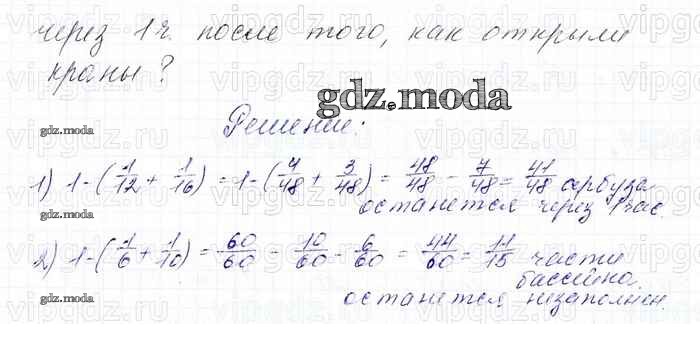 через 1 ч. после того, как открыли
краны?
gdz.moda
Решение:
gdz.moda
1) 1-(1/12 + 1/16) = 1-(4/48 + 3/48) = 48/48 - 7/48 = 41/48 арбуза
останется через 1 час.
2) 1-(1/6 + 1/10) = 60/60 - 10/60 - 6/60 = 44/60 = 11/15 части
бассейна
останется незаполнен
gdz.moda
gdz.moda
vipgdz.ru